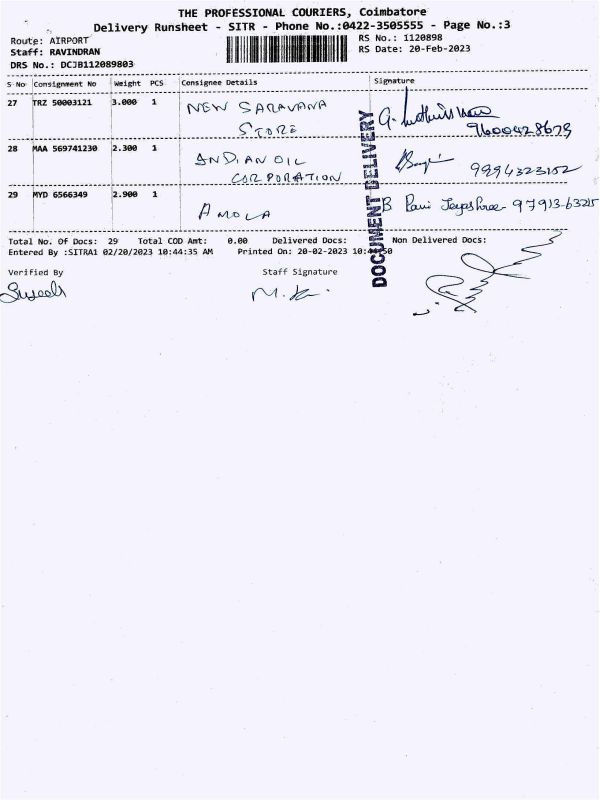 THE PROFESSIONAL COURIERS, Coimbatore
Delivery Runsheet - SITR - Phone No.:0422-3505555 - Page No.:3
Route: AIRPORT
RS No.: 1120898
Staff: RAVINDRAN
RS Date: 20-Feb-2023
DRS No.: DCJB112089803
S No Consignment No Weight PCS Consignee Details Signature
27 TRZ 50003121 3.000 1 NEW SARAVANA
STORE
9600428679
28 MAA 569741230 2.300 1 INDIAN OIL
CORPORATION
9994323152
29 MYD 6566349 2.900 1 AMOLA
B Pavi Jeyashree 97913-63215
DOCUMENT DELIVERY
Total No. Of Docs: 29 Total COD Amt: 0.00 Delivered Docs: Non Delivered Docs:
Entered By :SITRA1 02/20/2023 10:44:35 AM Printed On: 20-02-2023 10:44:50
Verified By Staff Signature